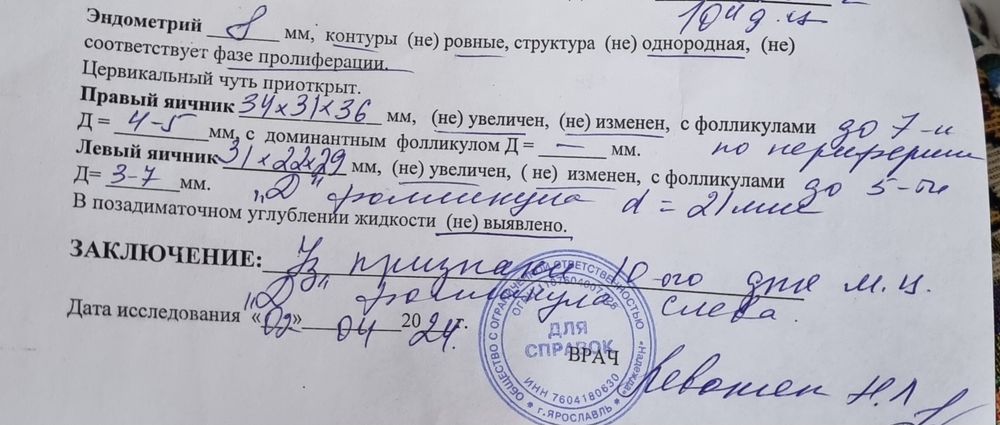 10й д.ц
Эндометрий 8 мм, контуры (не) ровные, структура (не) однородная, (не)
соответствует фазе пролиферации.
Цервикальный чуть приоткрыт.
Правый яичник 34х31х36 мм, (не) увеличен, (не) изменен, с фолликулами до 7-и
Д = 4-5 мм, с доминантным фолликулом Д = — мм. по периферии
Левый яичник 31х22х29 мм, (не) увеличен, ( не) изменен, с фолликулами до 5-ти
Д= 3-7 мм. „Д" фолликула d = 21мм
В позадиматочном углублении жидкости (не) выявлено.
ЗАКЛЮЧЕНИЕ: Уз признаки 10-ого дня м.ц.
„Д" фолликула слева.
Дата исследования «02» 04 2024г.
ВРАЧ
ОБЩЕСТВО С ОГРАНИЧЕННОЙ ОТВЕТСТВЕННОСТЬЮ
«Надежда»
ДЛЯ
СПРАВОК
ИНН 7604180630
г.ЯРОСЛАВЛЬ